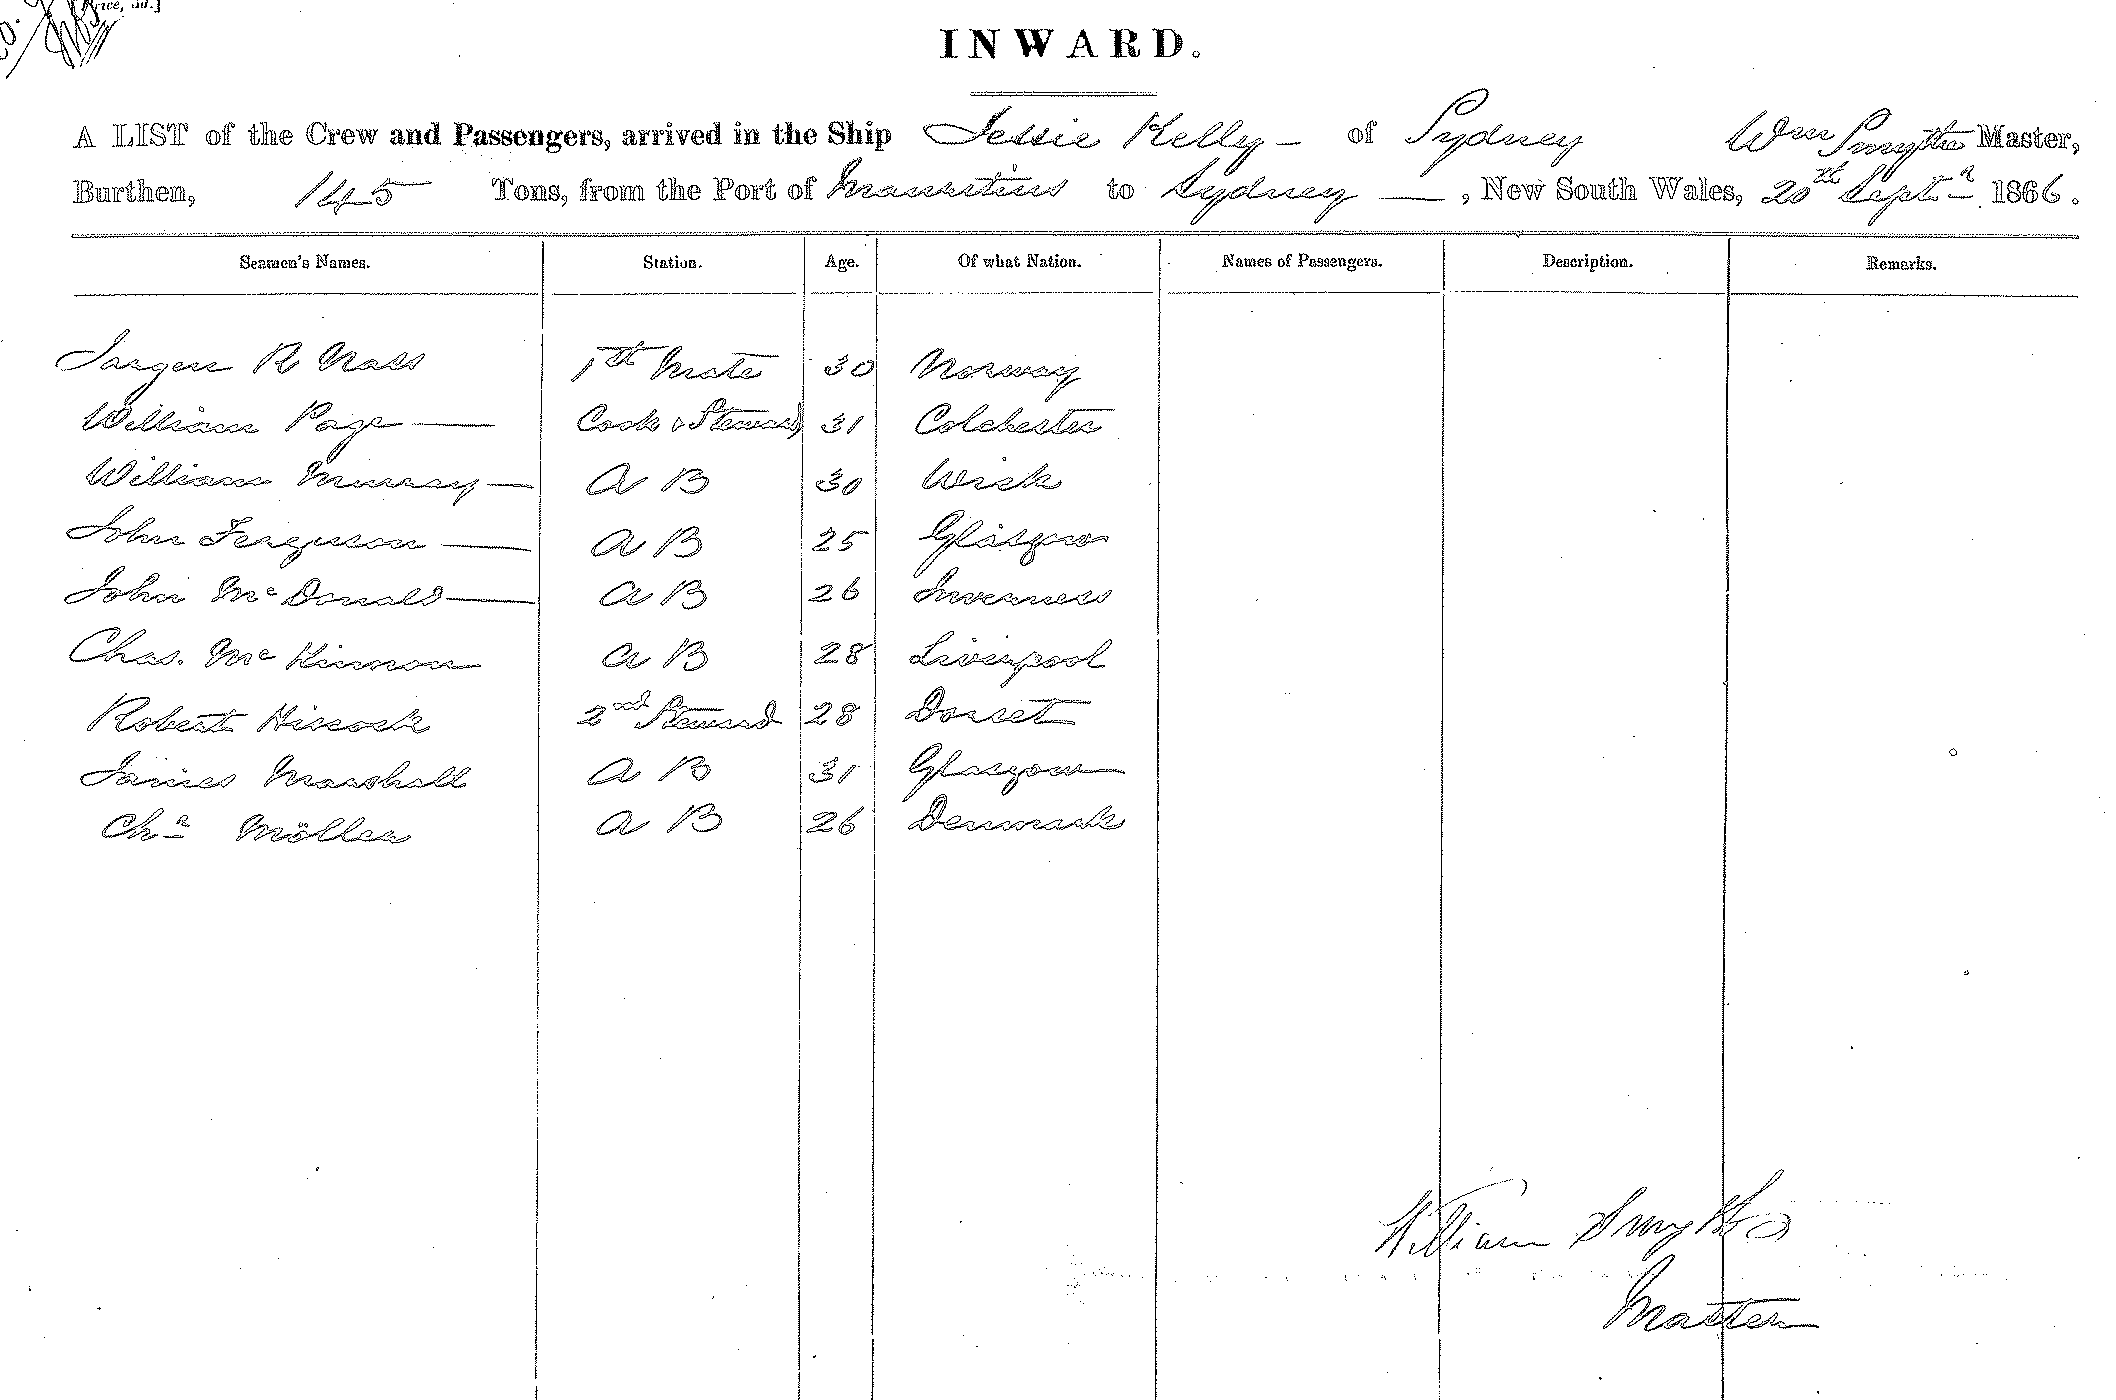 rice, 3d.]
INWARD.
A LIST of the Crew and Passengers, arrived in the Ship Jessie Kelly - of Sydney Wm Smyth Master,
Burthen, 145 Tons, from the Port of Mauritius to Sydney — , New South Wales, 20th Septr 1866.
Seamen's Names. Station. Age. Of what Nation. Names of Passengers. Description. Remarks.
Jargen R Nass 1st Mate 30 Norway
William Page — Cook & Steward 31 Colchester
William Murray — A B 30 Wick
John Ferguson — A B 25 Glasgow
John McDonald — A B 26 Inverness
Chas. McKinnon A B 28 Liverpool
Robert Hiscock 2nd Steward 28 Dorset
James Marshall A B 31 Glasgow
Chr Möller A B 26 Denmark
William Smyth
Master